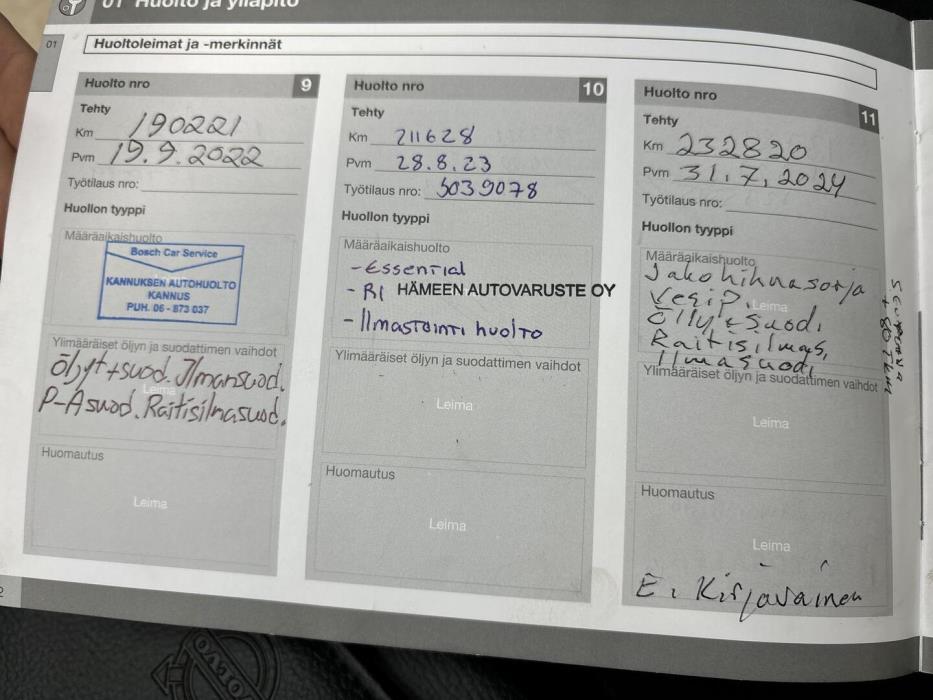 01 Huolto ja ylläpito
01
Huoltoleimat ja -merkinnät
Huolto nro 9
Tehty
Km 190221
Pvm 19.9.2022
Työtilaus nro:
Huollon tyyppi
Määräaikaishuolto
Bosch Car Service
KANNUKSEN AUTOHUOLTO
KANNUS
PUH. 06 - 873 037
Ylimääräiset öljyn ja suodattimen vaihdot
Öljyt+suod. Ilmansuod.
Leima
P-Asuod. Raitisilmasuod.
Huomautus
Leima
Huolto nro 10
Tehty
Km 211628
Pvm 28.8.23
Työtilaus nro: 5039078
Huollon tyyppi
Määräaikaishuolto
- Essential
- RI HÄMEEN AUTOVARUSTE OY
- Ilmastointi huolto
Ylimääräiset öljyn ja suodattimen vaihdot
Leima
Huomautus
Leima
Huolto nro 11
Tehty
Km 232820
Pvm 31.7.2024
Työtilaus nro:
Huollon tyyppi
Määräaikaishuolto
Jakohihnasarja
Vesip.
Leima
Öljy+Suod.
Raitisilmas,
Ilmasuod,
Ylimääräiset öljyn ja suodattimen vaihdot
Leima
Huomautus
Leima
E. Kirjavainen
VOLVO